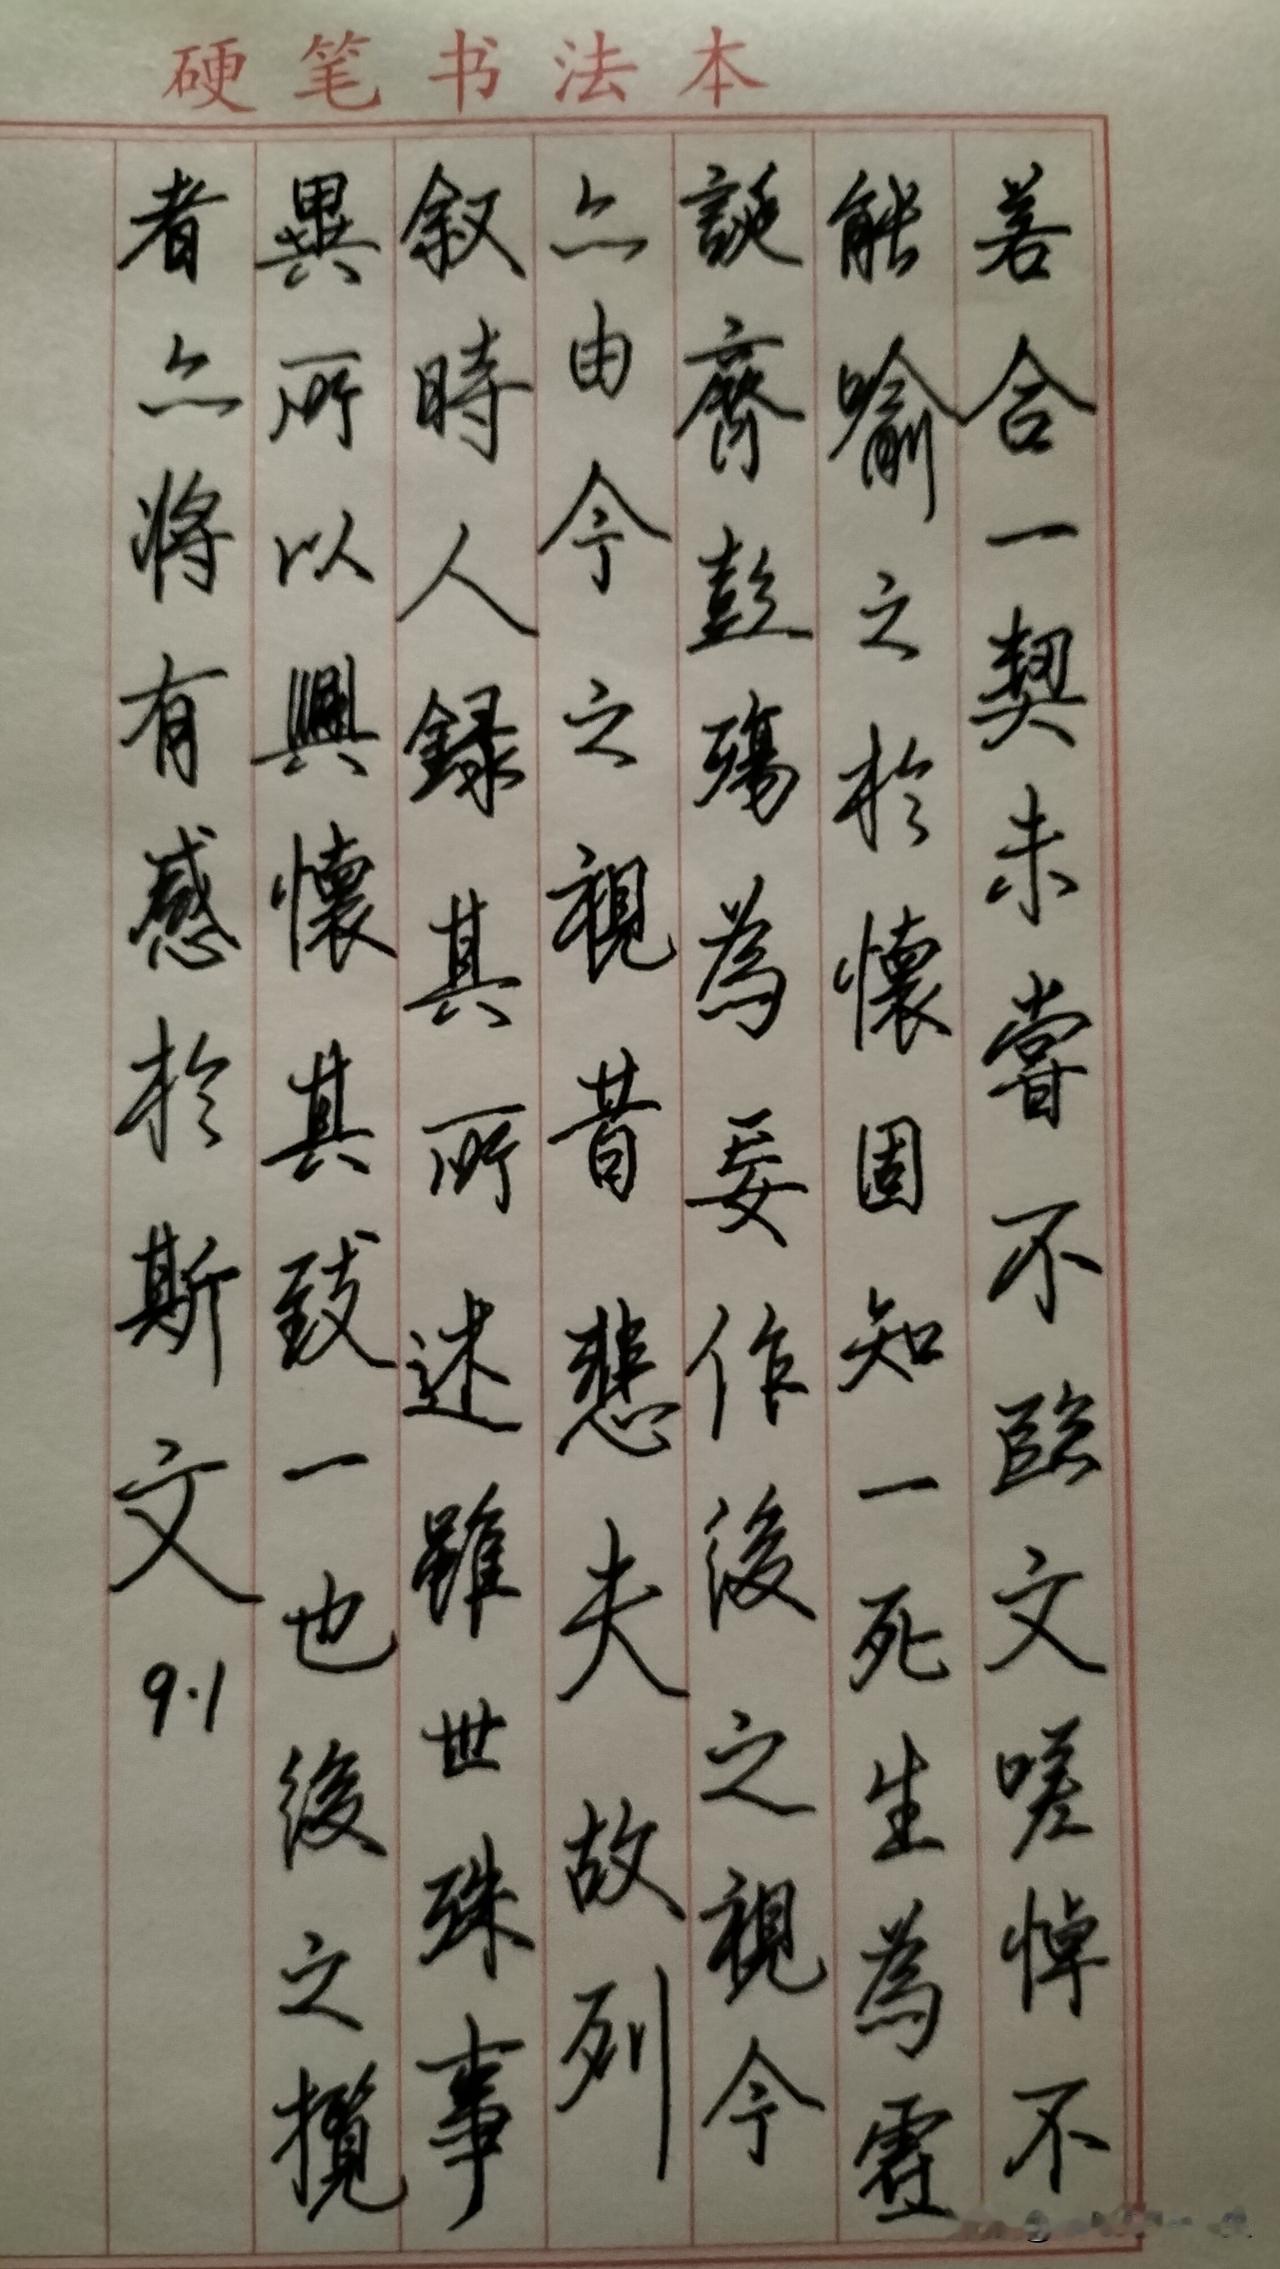 硬笔书法本
若合一契未嘗不臨文嗟悼不
能喻之於懷固知一死生為虛
誕齊彭殤為妄作後之視今
亦由今之視昔悲夫故列
叙時人録其所述雖世殊事
異所以興懷其致一也後之攬
者亦將有感於斯文 9.1